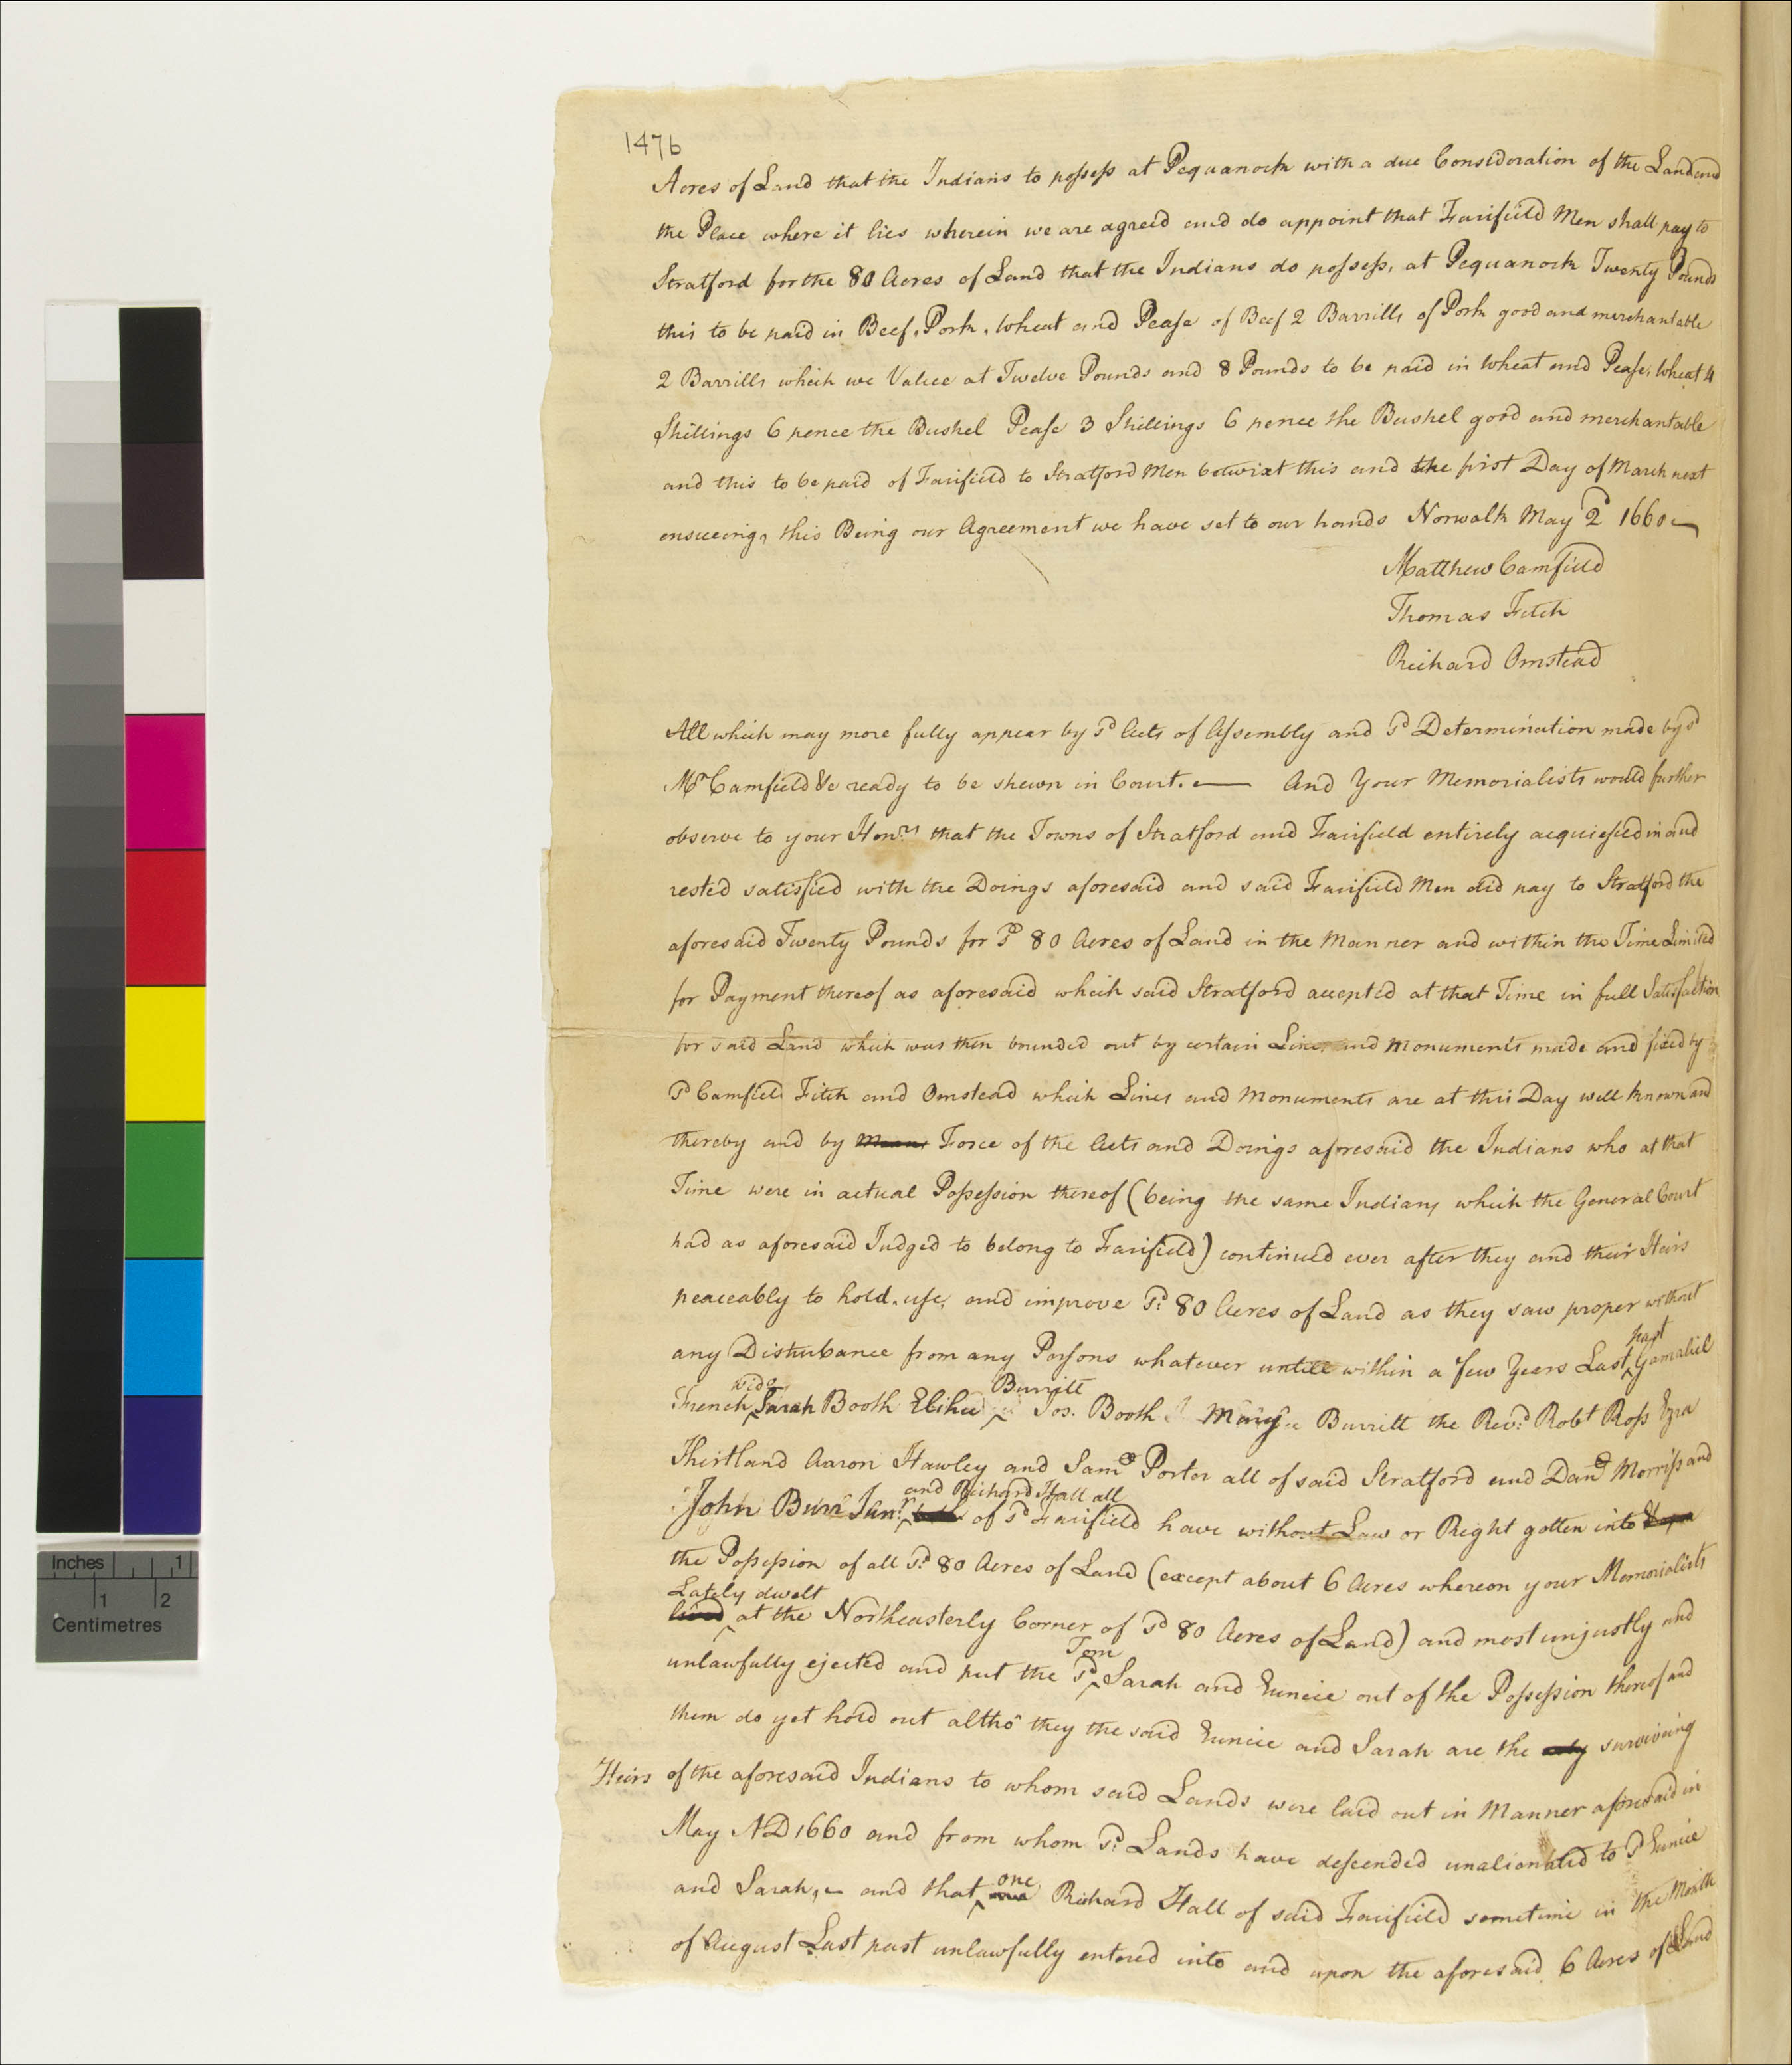 147b
Acres of Land that the Indians to possess at Pequanock with a due Consideration of the Land and
the Place where it lies wherein we are agreed and do appoint that Fairfield Men shall pay to
Stratford for the 80 Acres of Land that the Indians do possess, at Pequanock Twenty Pounds
this to be paid in Beef, Pork, Wheat and Pease of Beef 2 Barrills of Pork good and merchantable
2 Barrills which we Value at Twelve Pounds and 8 Pounds to be paid in Wheat and Pease, Wheat 4
Shillings 6 pence the Bushel Pease 3 Shillings 6 pence the Bushel good and merchantable
and this to be paid of Fairfield to Stratford Men betwixt this and the first Day of March next
ensueing, this Being our Agreement we have set to our hands Norwalk May 2d 1660
Matthew Camfield
Thomas Fitch
Richard Omstead
All which may more fully appear by sd Acts of Assembly and sd Determination made by sd
Mr Camfield &c ready to be shewn in Court. — And Your Memorialists would further
observe to your Honrs that the Towns of Stratford and Fairfield entirely acquiesced in and
rested satisfied with the Doings aforesaid and said Fairfield Men did pay to Stratford the
aforesaid Twenty Pounds for sd 80 Acres of Land in the Manner and within the Time Limited
for Payment thereof as aforesaid which said Stratford accepted at that Time in full Satisfaction
for said Land which was then bounded out by certain Lines and Monuments made and fixed by
sd Camfield Fitch and Omstead which Lines and Monuments are at this Day well known and
thereby and by Means Force of the Acts and Doings aforesaid the Indians who at that
Time were in actual Possession thereof (being the same Indians which the General Court
had as aforesaid Judged to belong to Fairfield) continued ever after they and their Heirs
peaceably to hold, use, and improve sd 80 Acres of Land as they saw proper without
any Disturbance from any Persons whatever untill within a few Years Last past Gamaliel
French, Wido Sarah Booth Elihu Burritt Jos. Booth Burritt the Revd Robt Ross Ezra
Thirtland Aaron Hawley and Saml Porter all of said Stratford and Danl Morriss and
John Burr Junr and Richard Hall all of sd Fairfield have without Law or Right gotten into
the Possession of all sd 80 Acres of Land (except about 6 Acres whereon your Memorialists
lived Lately dwelt at the Northeasterly Corner of sd 80 Acres of Land) and most unjustly and
unlawfully ejected and put the sd Tom Sarah and Eunice out of the Possession thereof and
them do yet hold out altho they the said Eunice and Sarah are the only surviving
Heirs of the aforesaid Indians to whom said Lands were laid out in Manner aforesaid in
May AD 1660 and from whom sd Lands have descended unalienated to sd Eunice
and Sarah, – and that one Richard Hall of said Fairfield sometime in the Month
of August Last past unlawfully entered into and upon the aforesaid 6 Acres of Land
Inches 1
1 2
Centimetres